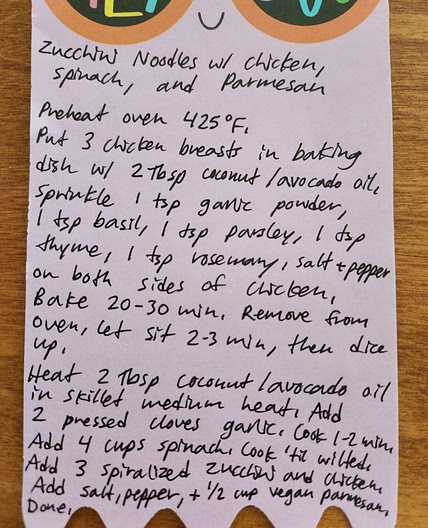 Zucchini Noodles w/ chicken,
spinach, and Parmesan
Preheat oven 425°F.
Put 3 chicken breasts in baking
dish w/ 2 Tbsp coconut/avocado oil,
sprinkle 1 tsp garlic powder,
1 tsp basil, 1 tsp parsley, 1 tsp
thyme, 1 tsp rosemary, salt + pepper
on both sides of chicken,
Bake 20-30 min. Remove from
oven, let sit 2-3 min, then dice
up.
Heat 2 Tbsp coconut/avocado oil
in skillet medium heat. Add
2 pressed cloves garlic. Cook 1-2 min.
Add 4 cups spinach. Cook 'til wilted.
Add 3 spiralized zucchini and chicken.
Add salt, pepper, + 1/2 cup vegan parmesan.
Done.